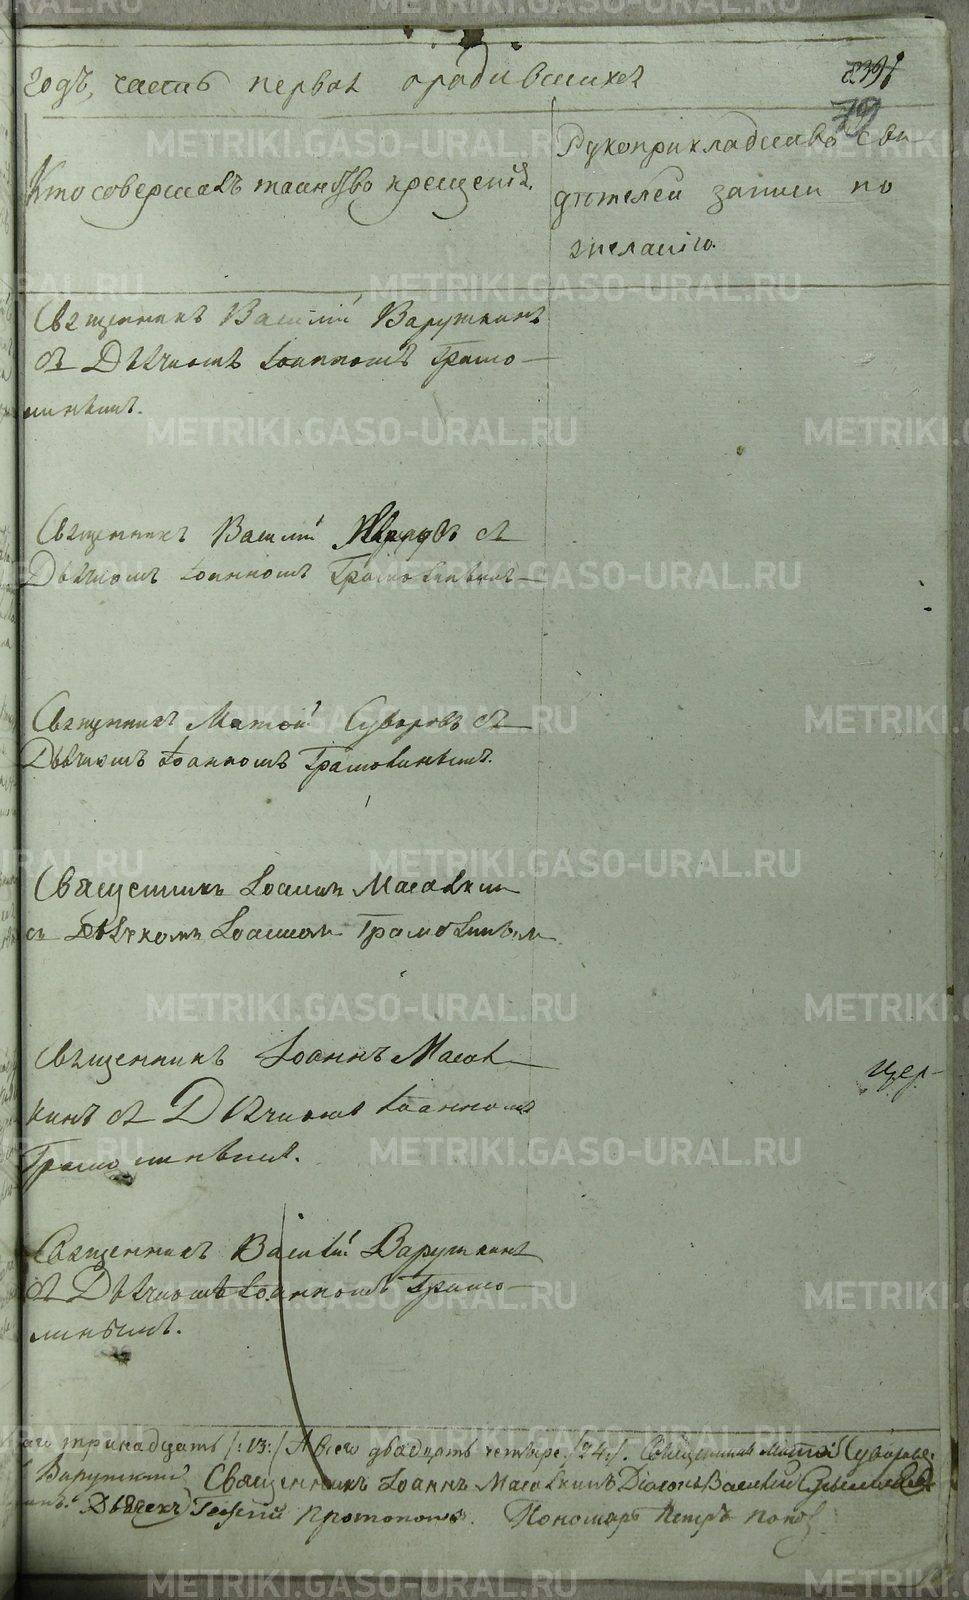 годъ, часть первая о родившихся
79
Кто совершалъ таинство крещенія.
Рукоприкладство сви
дѣтелей записи по
желанію.
Священникъ Василій Варушкинъ
съ Дьячкомъ Іоанномъ Грамо
линымъ.
Священникъ Василій съ
Дьячкомъ Іоанномъ Грамолинымъ
Священникъ Матөій Суворовъ съ
Дьячкомъ Іоанномъ Грамолинымъ.
Священникъ Іоаннъ Масалкин
съ Дьячкомъ Іоанномъ Грамолинымъ
Священникъ Іоаннъ Масал
кинъ съ Дьячкомъ Іоанномъ
Грамолинымъ.
цер-
Священникъ Василій Варушкинъ
съ Дьячкомъ Іоанномъ Грамо
линымъ.
тринадцать /:13:/ А всего двадцать четыре /24/. Священникъ Матөій Суворовъ
Варушкинъ Священникъ Іоаннъ Масалкинъ Діаконъ Василій
Дьячекъ Георгій Протопоповъ. Пономарь Петръ Попов
METRIKI.GASO-URAL.RU